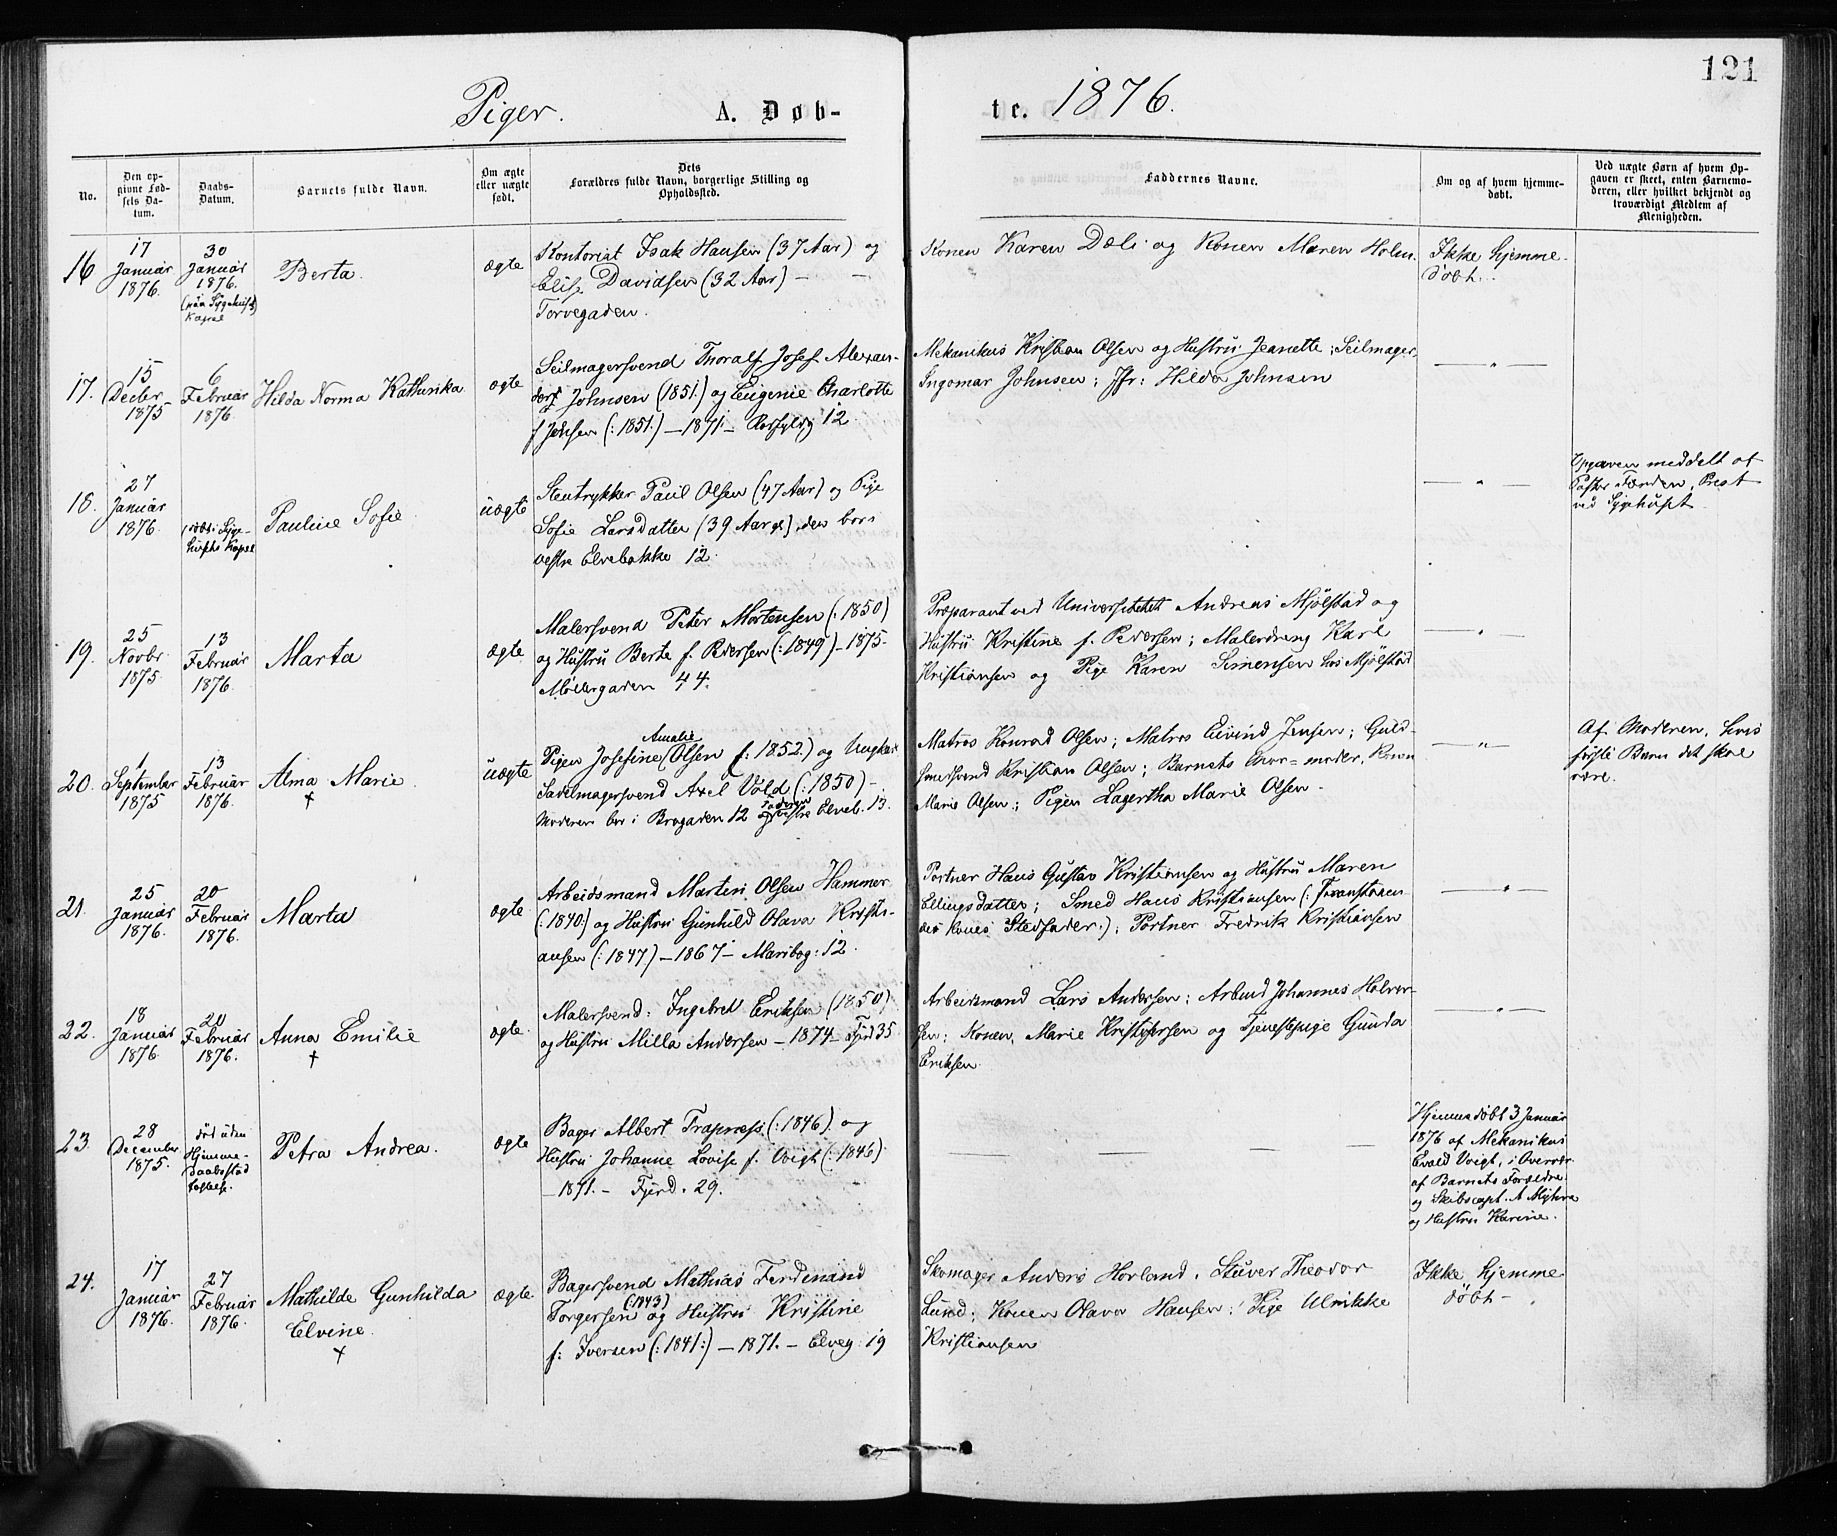 121
Piger. A. Døb-
te. 1876.
No.
Den op-
givne Fød-
sels Da-
tum.
Daabs-
Datum.
Barnets fulde Navn.
Om ægte
eller uægte
født.
Dets
Forældres fulde Navn, borgerlige Stilling og
Opholdssted.
Faddernes Navne.
Om og af hvem hjemme-
døbt.
Ved uægte Børn af hvem Op-
gaven er skeet, enten Barnemo-
deren, eller hvilket bekjendt og
troværdigt Medlem af
Menigheden.
16
17
Januar
1876.
30
Januar
1876.
(paa Sygehusets
Kapel
Berta.
ægte
Kontorist Isak Hansen (37 Aar) og
Elise Davidsen (32 Aar) —
Torvegaden.
Konen Karen Dæli og Konen Maren Holm.
Ikke hjemme-
døbt.
17.
15
Decbr
1875
6
Februar
1876
Hilda Norma Kathinka
ægte
Seilmagersvend Thoralf Josef Alexan-
Johnsen (1851.) og Eugenie Charlotte
f Jensen (:1851.) — 1871 — 12
Mekanikus Kristian Olsen og Hustru Jeanette; Seilmager
Ingomar Johnsen; Jfr: Hilda Johnsen
— " —
18.
27
Januar
1876.
(døbt i Syge-
husets Kapel
Pauline Sofie
uægte
Stentrykker Paul Olsen (47 Aar) og Pige
Sofie Larsdatter (39 Aar gl), den bor i
vestre Elvebakke 12.
— " —
Opgaven meddelt af
Pastor Færden, Prest
ved Sygehuset.
19.
25
Novbr
1875
13
Februar
1876
Marta
ægte
Malersvend Peter Mortensen (:1850)
og Hustru Berte f. Pedersen (:1849) — 1875.
Møllergaden 44.
Præparant ved Universitetet Andreas Mjølstad og
Hustru Kristine f. Pedersen; Malerdreng Karl
Kristiansen og Pige Karen Simensen hos Mjølstad
— " —
20.
1
September
1875
13
Februar
1876.
Alma Marie.
+
uægte
Amalie
Pigen Josefine (Olsen f: 1852.) og Ungkarl
Sadelmagersvend Axel Vold (:1850) —
Moderen bor i Brogaden 12 Faderen vestre Elveb. 13.
Matros Konrad Olsen; Matros Eivind Jensen; Guld-
smedsvend Kristian Olsen; Barnets Mor-moder, Konen
Marie Olsen; Pigen Lagertha Marie Olsen.
— " —
Af Moderen, hvis
første Barn det skal
være.
21.
25
Januar
1876.
20
Februar
1876.
Marta
ægte
Arbeidsmand Martin Olsen Hammer
(:1840:) og Hustru Gunhild Olava Kristi-
ansen (:1847.) — 1867 — Maribog: 12
Portner Hans Gustav Kristiansen og Hustru Maren
Ellingsdatter; Smed Hans Kristiansen (: Foranstaaen
des Kones Stedfader.); Portner Fredrik Kristiansen
— " —
22.
18
Januar
1876
20
Februar
1876.
Anna Emilie
+
ægte.
Malersvend: Ingebret Eriksen (1850)
og Hustru Milla Andersen — 1874 — Fjrd 35
Arbeidsmand Lars Andersen; Arbmd Johannes Halvor-
sen; Konen Marie Kristofersen og Tjenestepige Gunda
Eriksen
— " —
23
28
December
1875.
død uden
Hjemme-
daabsstad
fæstelse.
Petra Andrea.
ægte
Bager Albert Trapness (:1846) og
Hustru Johanne Lovise f. Voigt (:1846)
— 1871. — Fjerd. 29.
— — —
Hjemmedøbt 3 Januar
1876 af Mekanikus
Evald Voigt, i Overvær
af Barnets Forældre
og Skibscapt. A Myhra
og Hustru Karine.
24.
17
Januar
1876.
27
Februar
1876.
Mathilde Gunhilda
Elvine.
+
ægte
Bagersvend Mathias Ferdinand
Torgersen (:1843) og Hustru Kristine
f: Iversen (:1841:) — 1871. — Elveg: 19
Skomager Anders Hovland, Stuver Theodor
Lund; Konen Olava Hansen; Pige Ulrikke
Kristiansen
Ikke hjemme
døbt —